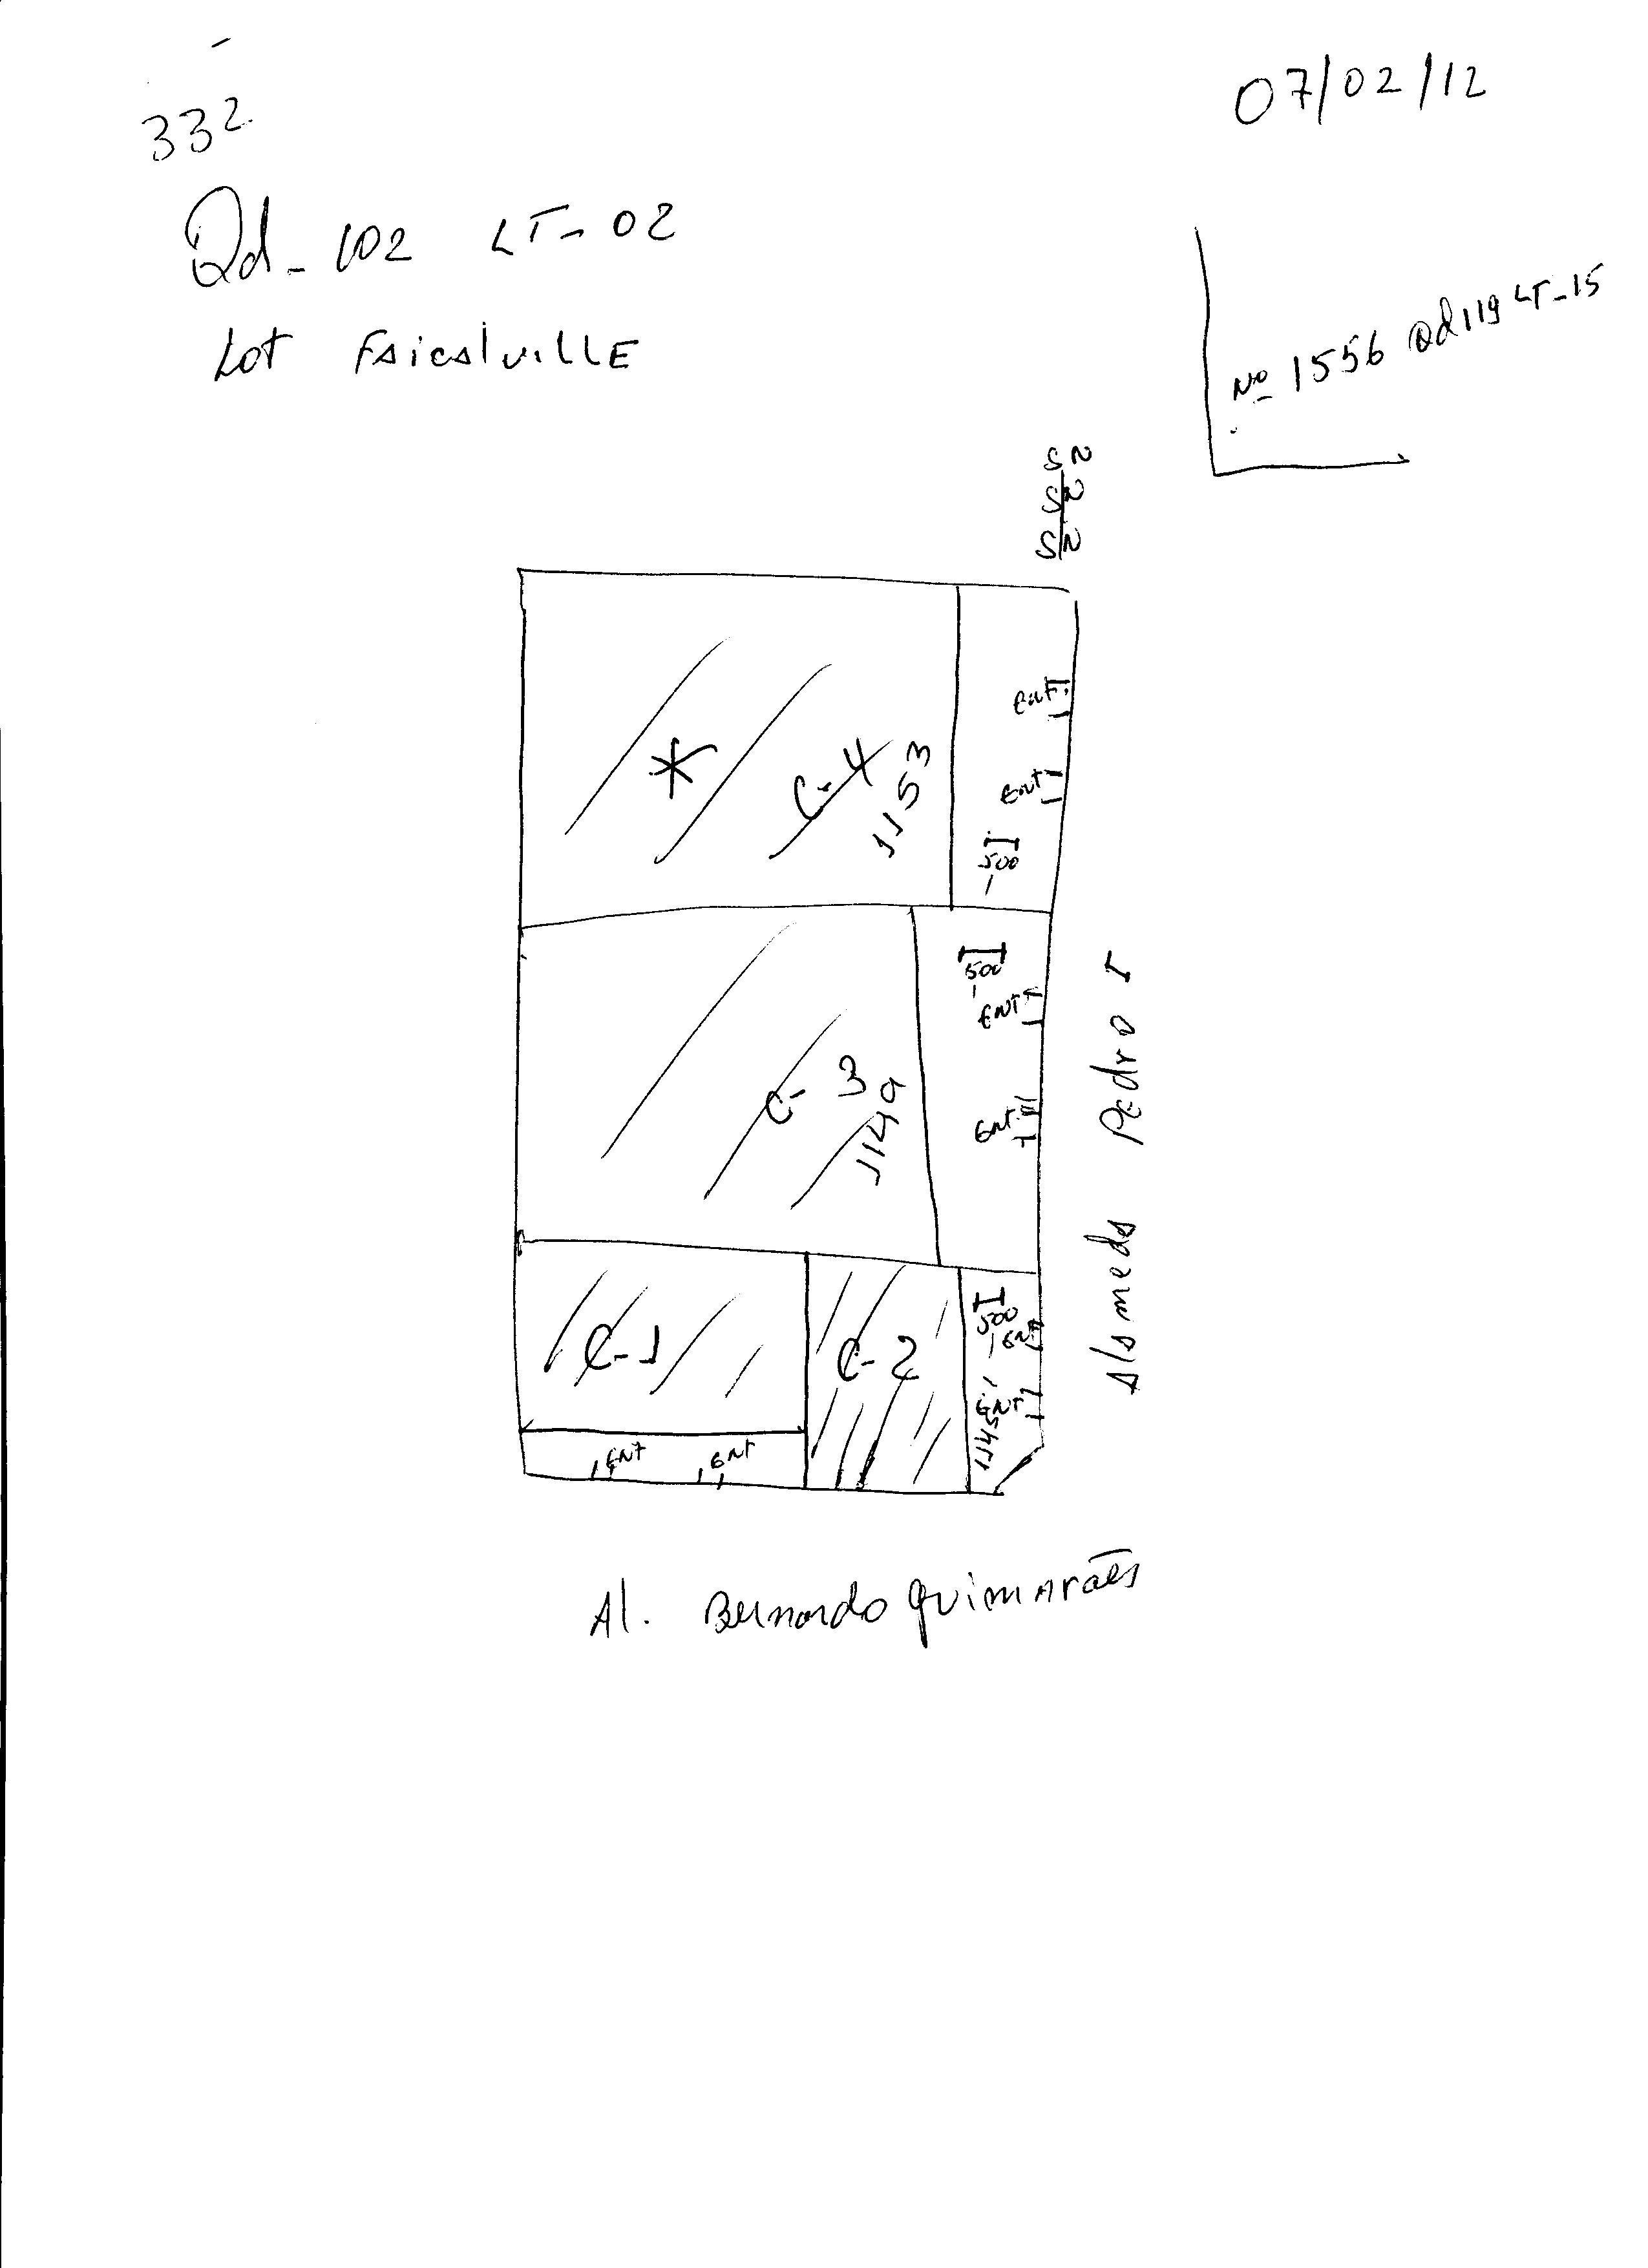 332
07/02/12
Qd - 102 LT - 02
Lot Faicalville
Nº 1556 Qd 119 LT - 15
SN
SN
SN
ENT
C-4
1153
ENT
500
500
ENT
C-3
1149
ENT
Alameda Pedro I
C-1
C-2
500
ENT
ENT
1145
ENT
ENT
Al. Bernardo Guimarães